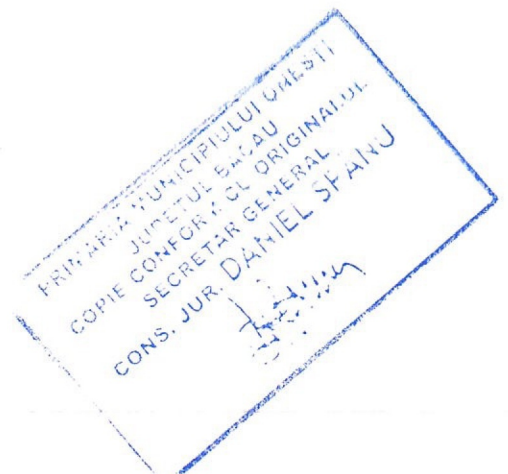 PRIMARIA MUNICIPIULUI ONESTI
JUDETUL BACAU
COPIE CONFORM CU ORIGINALUL
SECRETAR GENERAL,
CONS. JUR. DANIEL SPANU